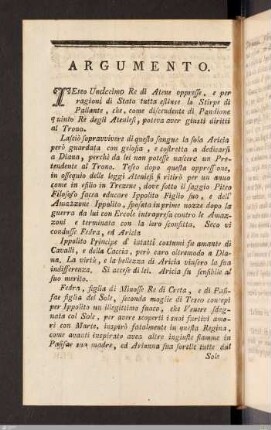 ARGUMENTO.
TEseo Undecimo Re di Atene oppresse, e per
ragioni di Stato tutta estinse la Stirpe di
Pallante, che, come discendente di Pandione
quinto Re degli Ateniesi, poteva aver giusti diritti
al Trono.
Lasciò sopravvivere di questo sangue la sola Aricia
però guardata con gelosia, e costretta a dedicarsi
a Diana, perchè da lei non potesse nascere un Pre-
tendente al Trono. Teseo dopo questa oppressione,
in ossequio delle leggi Ateniesi si ritirò per un anno
come in esilio in Trezene, dove sotto il saggio Piteo
Filosofo facea educare Ippolito Figlio suo, e dell'
Amazzone Ippolito, sposata in prime nozze dopo la
guerra da lui con Ercole intrapresa contro le Amaz-
zoni e terminata con la loro sconfitta. Seco vi
condusse Fedra, ed Aricia
Ippolito Principe d' intatti costumi fu amante di
Cavalli, e della Caccia, però caro oltremodo a Dia-
na. La virtù, e la bellezza di Aricia vinsero la sua
indifferenza. Si accese di lei. Aricia fu sensibile al
suo merito.
Fedra, figlia di Minosse Re di Creta, e di Pasi-
fae figlia del Sole, seconda moglie di Teseo concepì
per Ippolito un illegittimo fuoco, che Venere sdeg-
nata col Sole, per avere scoperti i suoi furtivi amo-
ri con Marte, inspirò fatalmente in questa Regina,
come avanti inspirato avea altre ingiuste fiamme in
Pasifae sua madre, ed Arianna sua sorella tutte dal
Sole